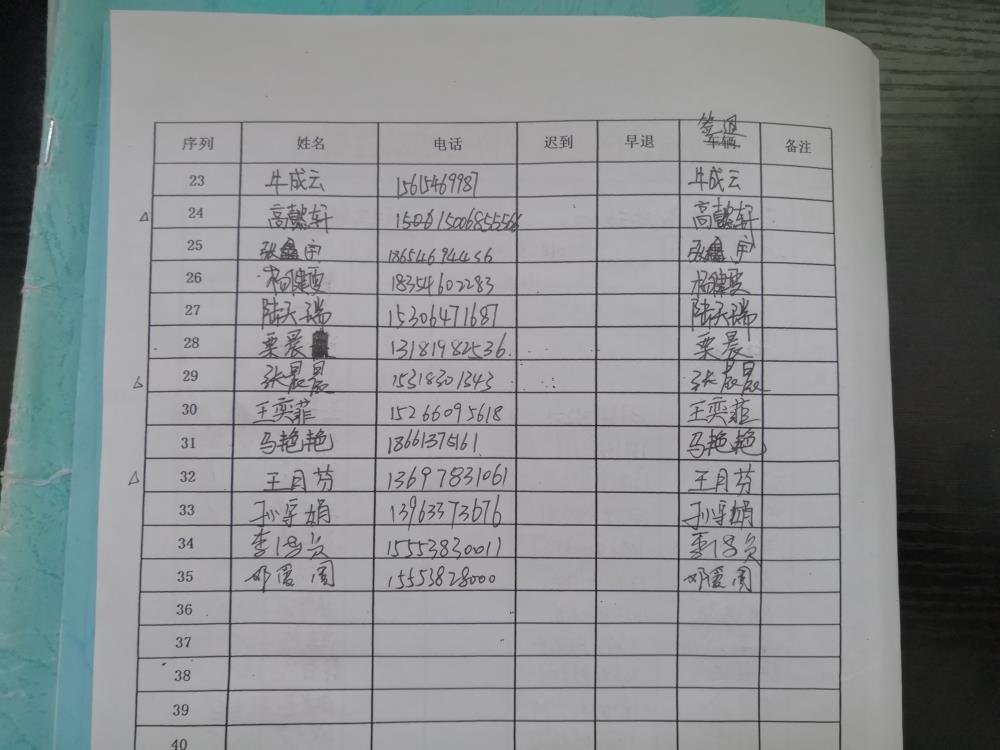 序列 姓名 电话 迟到 早退 签退 车辆 备注
23 牛成云 15615469987 牛成云
24 高懿轩 高懿轩
25 张鑫宇 18654694436 张鑫宇
26 杨健 18354602283 杨健
27 陆天瑞 15306471687 陆天瑞
28 栗晨 13181982536. 栗晨
29 张晨晨 15318301343 张晨晨
30 王奕菲 15266095618 王奕菲
31 马艳艳 18661375161 马艳艳
32 王月芬 13697831061 王月芬
33 孙 娟 13963373676 孙 娟
34 李 15553830011 李
35 邓爱国 15553828000 邓爱国
36
37
38
39
40